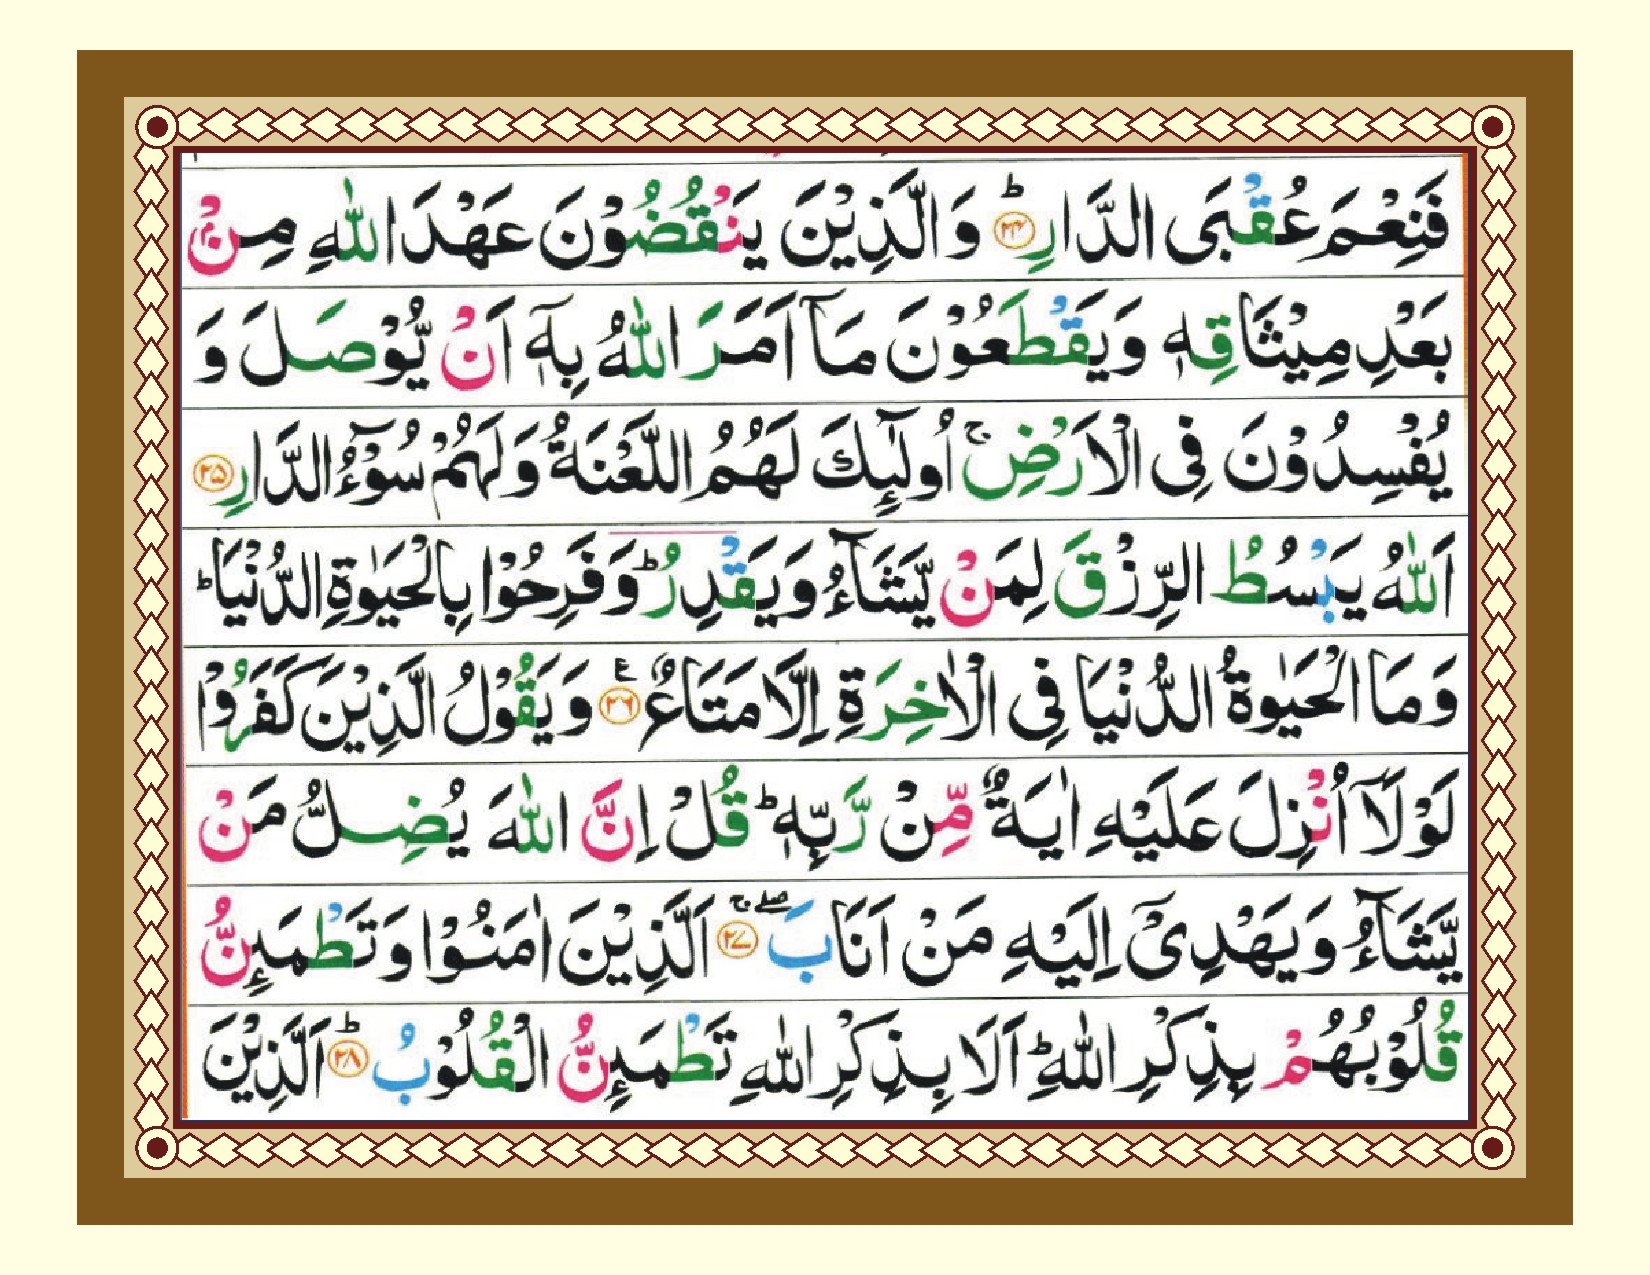 فَنِعْمَ عُقْبَى الدَّارِؕ ﴿۲۴﴾ وَ الَّذِیْنَ یَنْقُضُوْنَ عَهْدَ اللّٰهِ مِنْۢ
بَعْدِ مِیْثَاقِهٖ وَیَقْطَعُوْنَ مَاۤ اَمَرَ اللّٰهُ بِهٖۤ اَنْ یُّوْصَلَ وَ
یُفْسِدُوْنَ فِی الْاَرْضِۙ اُولٰٓىِٕكَ لَهُمُ اللَّعْنَةُ وَلَهُمْ سُوْٓءُ الدَّارِ ﴿۲۵﴾
اَللّٰهُ یَبْسُطُ الرِّزْقَ لِمَنْ یَّشَآءُ وَیَقْدِرُؕ وَفَرِحُوْا بِالْحَیٰوةِ الدُّنْیَاؕ
وَمَا الْحَیٰوةُ الدُّنْیَا فِی الْاٰخِرَةِ اِلَّا مَتَاعٌ ﴿۲۶﴾ ع وَیَقُوْلُ الَّذِیْنَ كَفَرُوْا
لَوْلَاۤ اُنْزِلَ عَلَیْهِ اٰیَةٌ مِّنْ رَّبِّهٖؕ قُلْ اِنَّ اللّٰهَ یُضِلُّ مَنْ
یَّشَآءُ وَیَهْدِیْۤ اِلَیْهِ مَنْ اَنَابَۖۚ ﴿۲۷﴾ اَلَّذِیْنَ اٰمَنُوْا وَتَطْمَىِٕنُّ
قُلُوْبُهُمْ بِذِكْرِ اللّٰهِؕ اَلَا بِذِكْرِ اللّٰهِ تَطْمَىِٕنُّ الْقُلُوْبُؕ ﴿۲۸﴾ اَلَّذِیْنَ